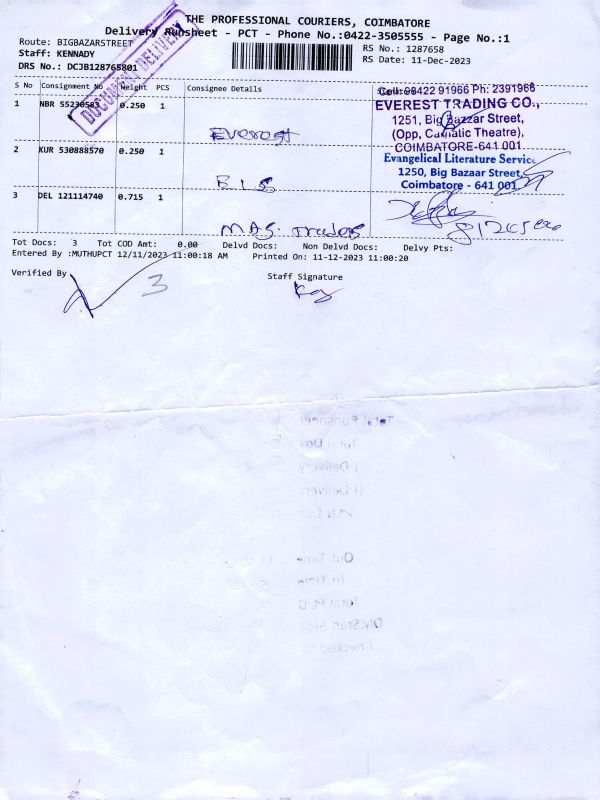 THE PROFESSIONAL COURIERS, COIMBATORE
Delivery Runsheet - PCT - Phone No.:0422-3505555 - Page No.:1
Route: BIGBAZARSTREET
RS No.: 1287658
Staff: KENNADY
RS Date: 11-Dec-2023
DRS No.: DCJB128765801
DOCUMENT DELIVERY
S No Consignment No Weight PCS Consignee Details
Cell: 98422 91966 Ph: 2391966
1 NBR 55230583 0.250 1
Everest
EVEREST TRADING CO.,
1251, Big Bazzar Street,
(Opp, Carnatic Theatre),
COIMBATORE-641 001
2 KUR 530888570 0.250 1
Evangelical Literature Service
1250, Big Bazaar Street,
Coimbatore - 641 001
3 DEL 121114740 0.715 1
MAS Traders
Tot Docs: 3 Tot COD Amt: 0.00 Delvd Docs: Non Delvd Docs: Delvy Pts:
Entered By :MUTHUPCT 12/11/2023 11:00:18 AM Printed On: 11-12-2023 11:00:20
Verified By
3
Staff Signature